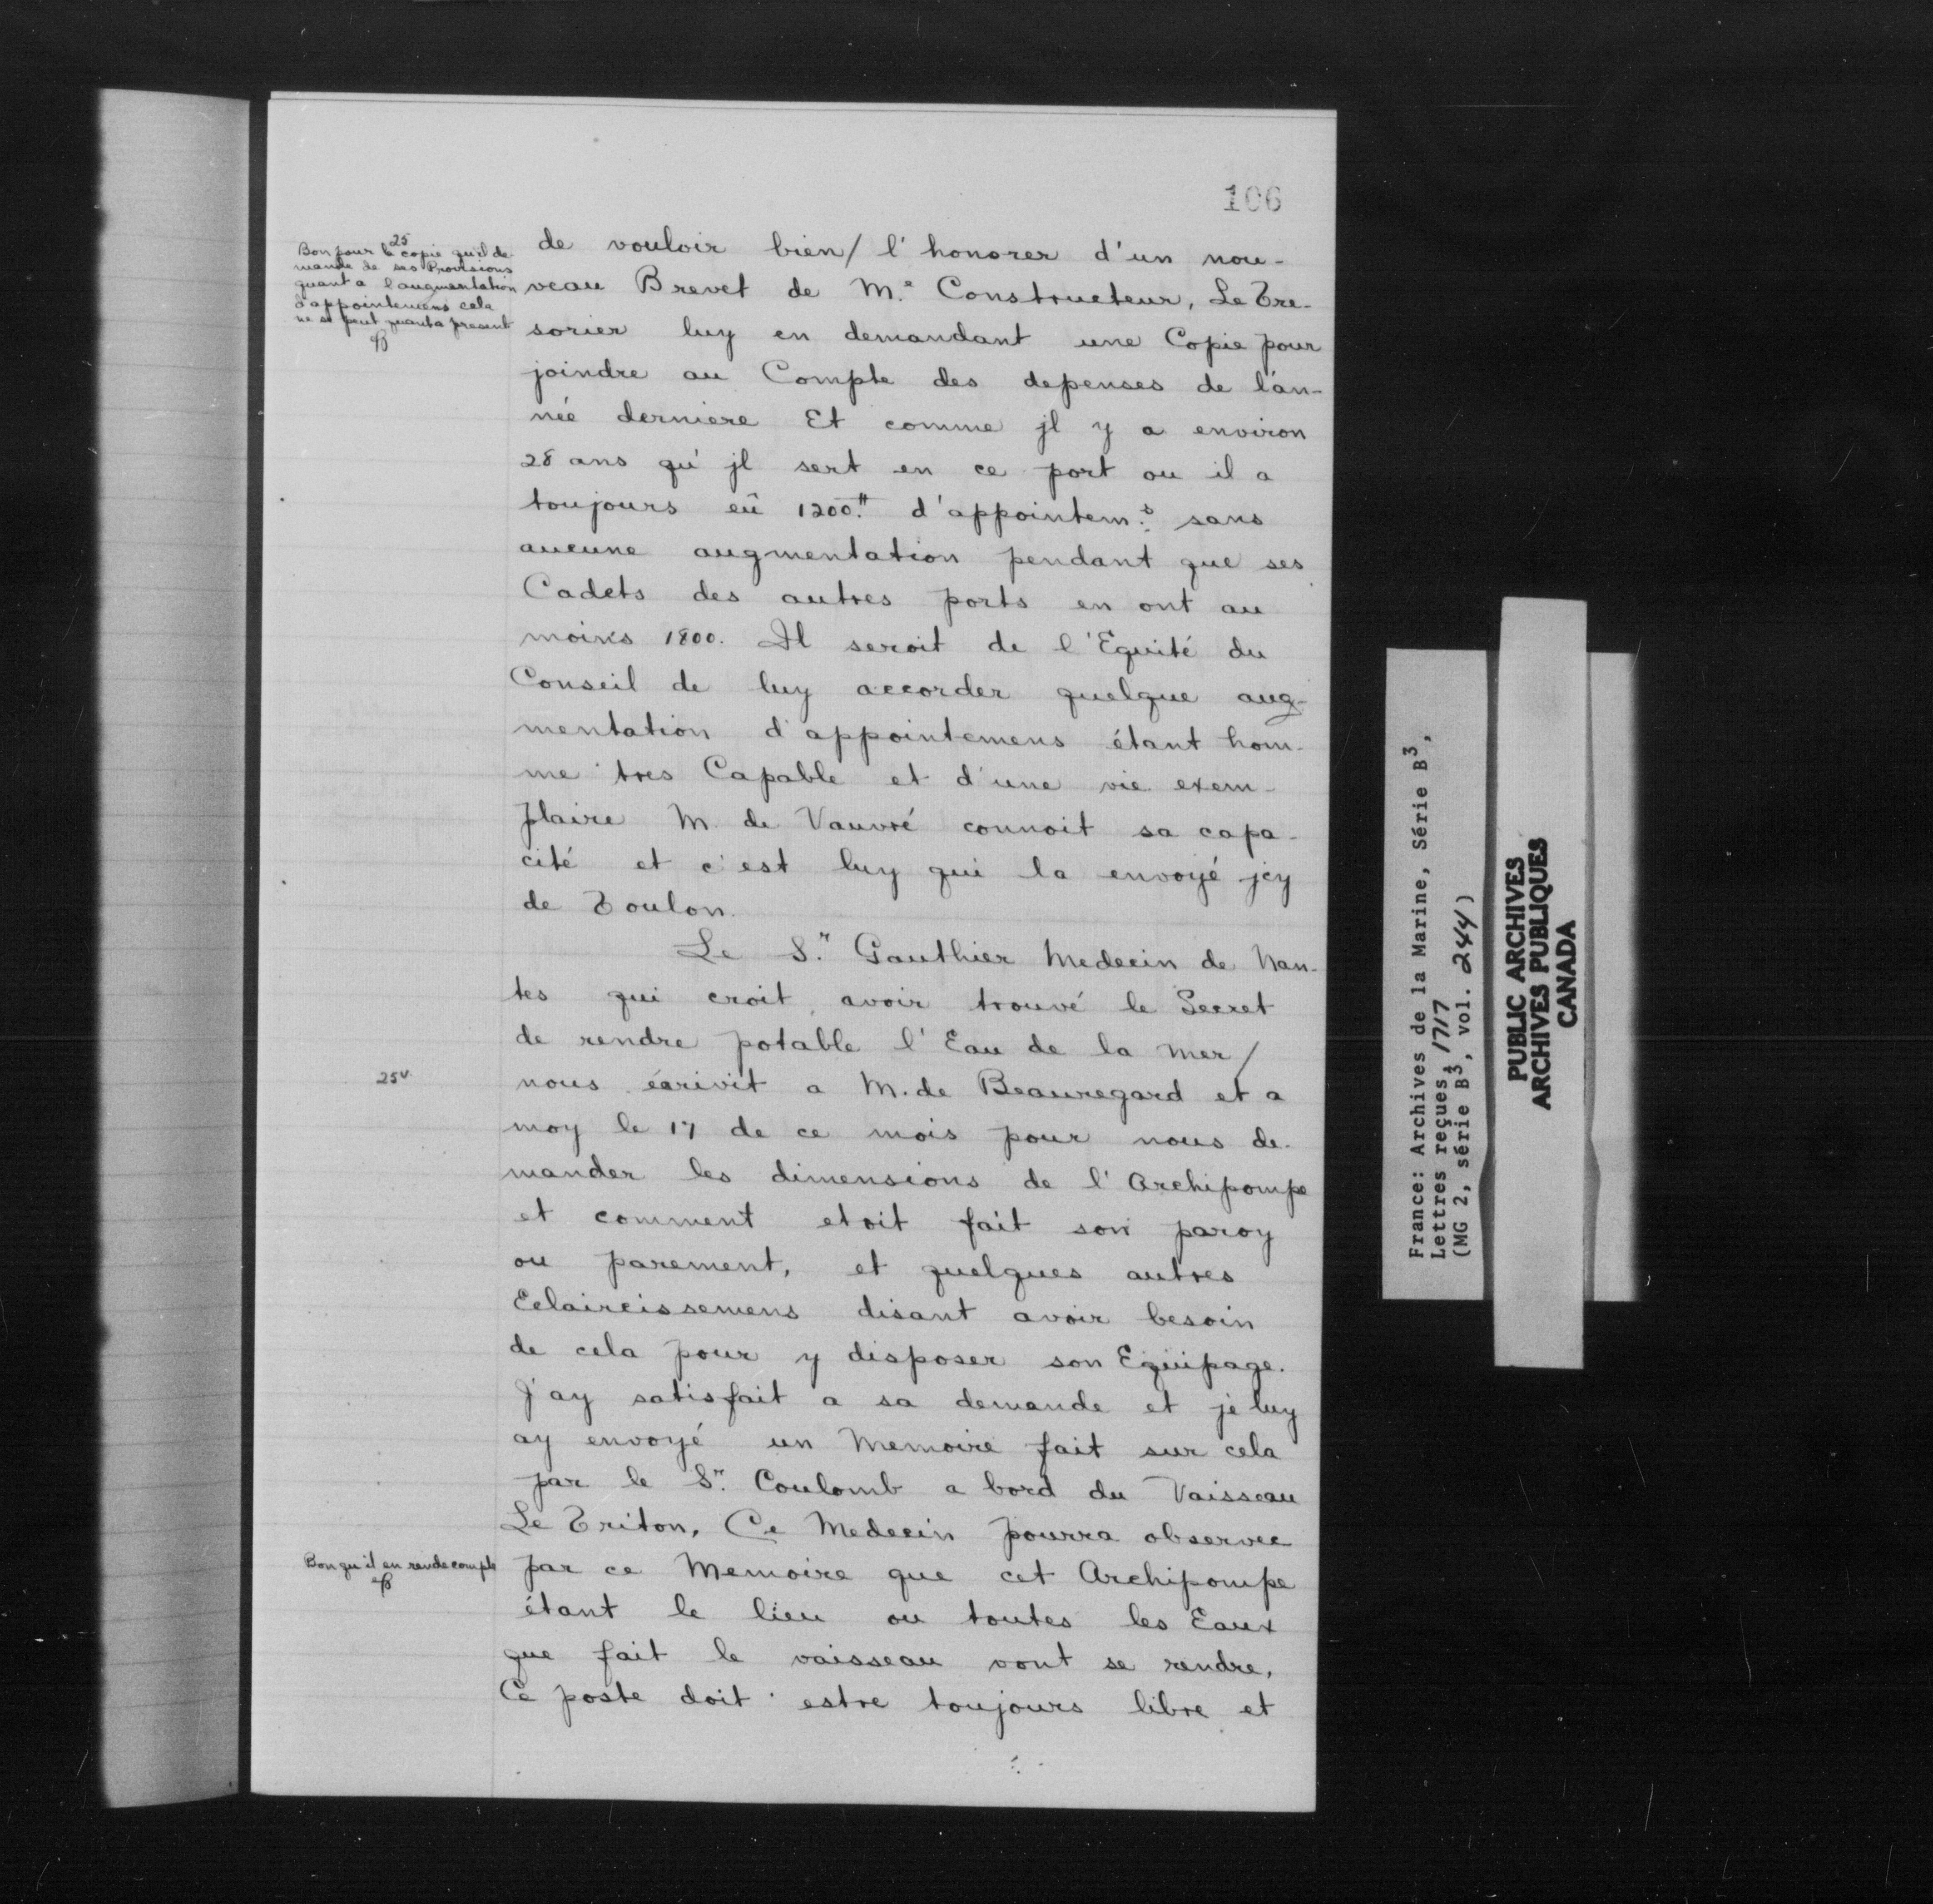 106
25
Bon pour la copie qu'il de-
mande de ses Provisions
quant a l'augmentation
d'appointemens cela
ne se peut quanta present
de vouloir bien/ l'honorer d'un nou-
veau Brevet de M.e Constructeur, Le Tre-
sorier luy en demandant une Copie pour
joindre au Compte des depenses de l'an-
née derniere Et comme jl y a environ
28 ans qu'jl sert en ce port ou il a
toujours eû 1200.# d'appointem.s sans
aucune augmentation pendant que ses
Cadets des autres ports en ont au
moins 1800. Il seroit de l'Equité du
Conseil de luy accorder quelque aug-
mentation d'appointemens étant hom-
me tres Capable et d'une vie exem-
plaire M. de Vauvré connoit sa capa-
cité et c'est luy qui la envoyé jcy
de Toulon.
Le S.r Gauthier Medecin de Nan-
tes qui croit avoir trouvé le Secret
de rendre potable l'Eau de la Mer/
25v.
nous écrivit a M. de Beauregard et a
moy le 17 de ce mois pour nous de-
mander les dimensions de l'Archipompe
et comment etoit fait son paroy
ou parement, et quelques autres
Eclaircissemens disant avoir besoin
de cela pour y disposer son Equipage.
J'ay satisfait a sa demande et je luy
ay envoyé un Memoire fait sur cela
par le S.r Coulomb a bord du Vaisseau
Le Triton, Ce Medecin pourra observer
Bon qu'il en rende compte
par ce Memoire que cet Archipompe
étant le lieu ou toutes les Eaux
que fait le vaisseau vont se rendre,
Ce poste doit estre toujours libre et
France: Archives de la Marine, Série B3,
Lettres reçues, 1717
(MG 2, série B3, vol. 244)
PUBLIC ARCHIVES
ARCHIVES PUBLIQUES
CANADA